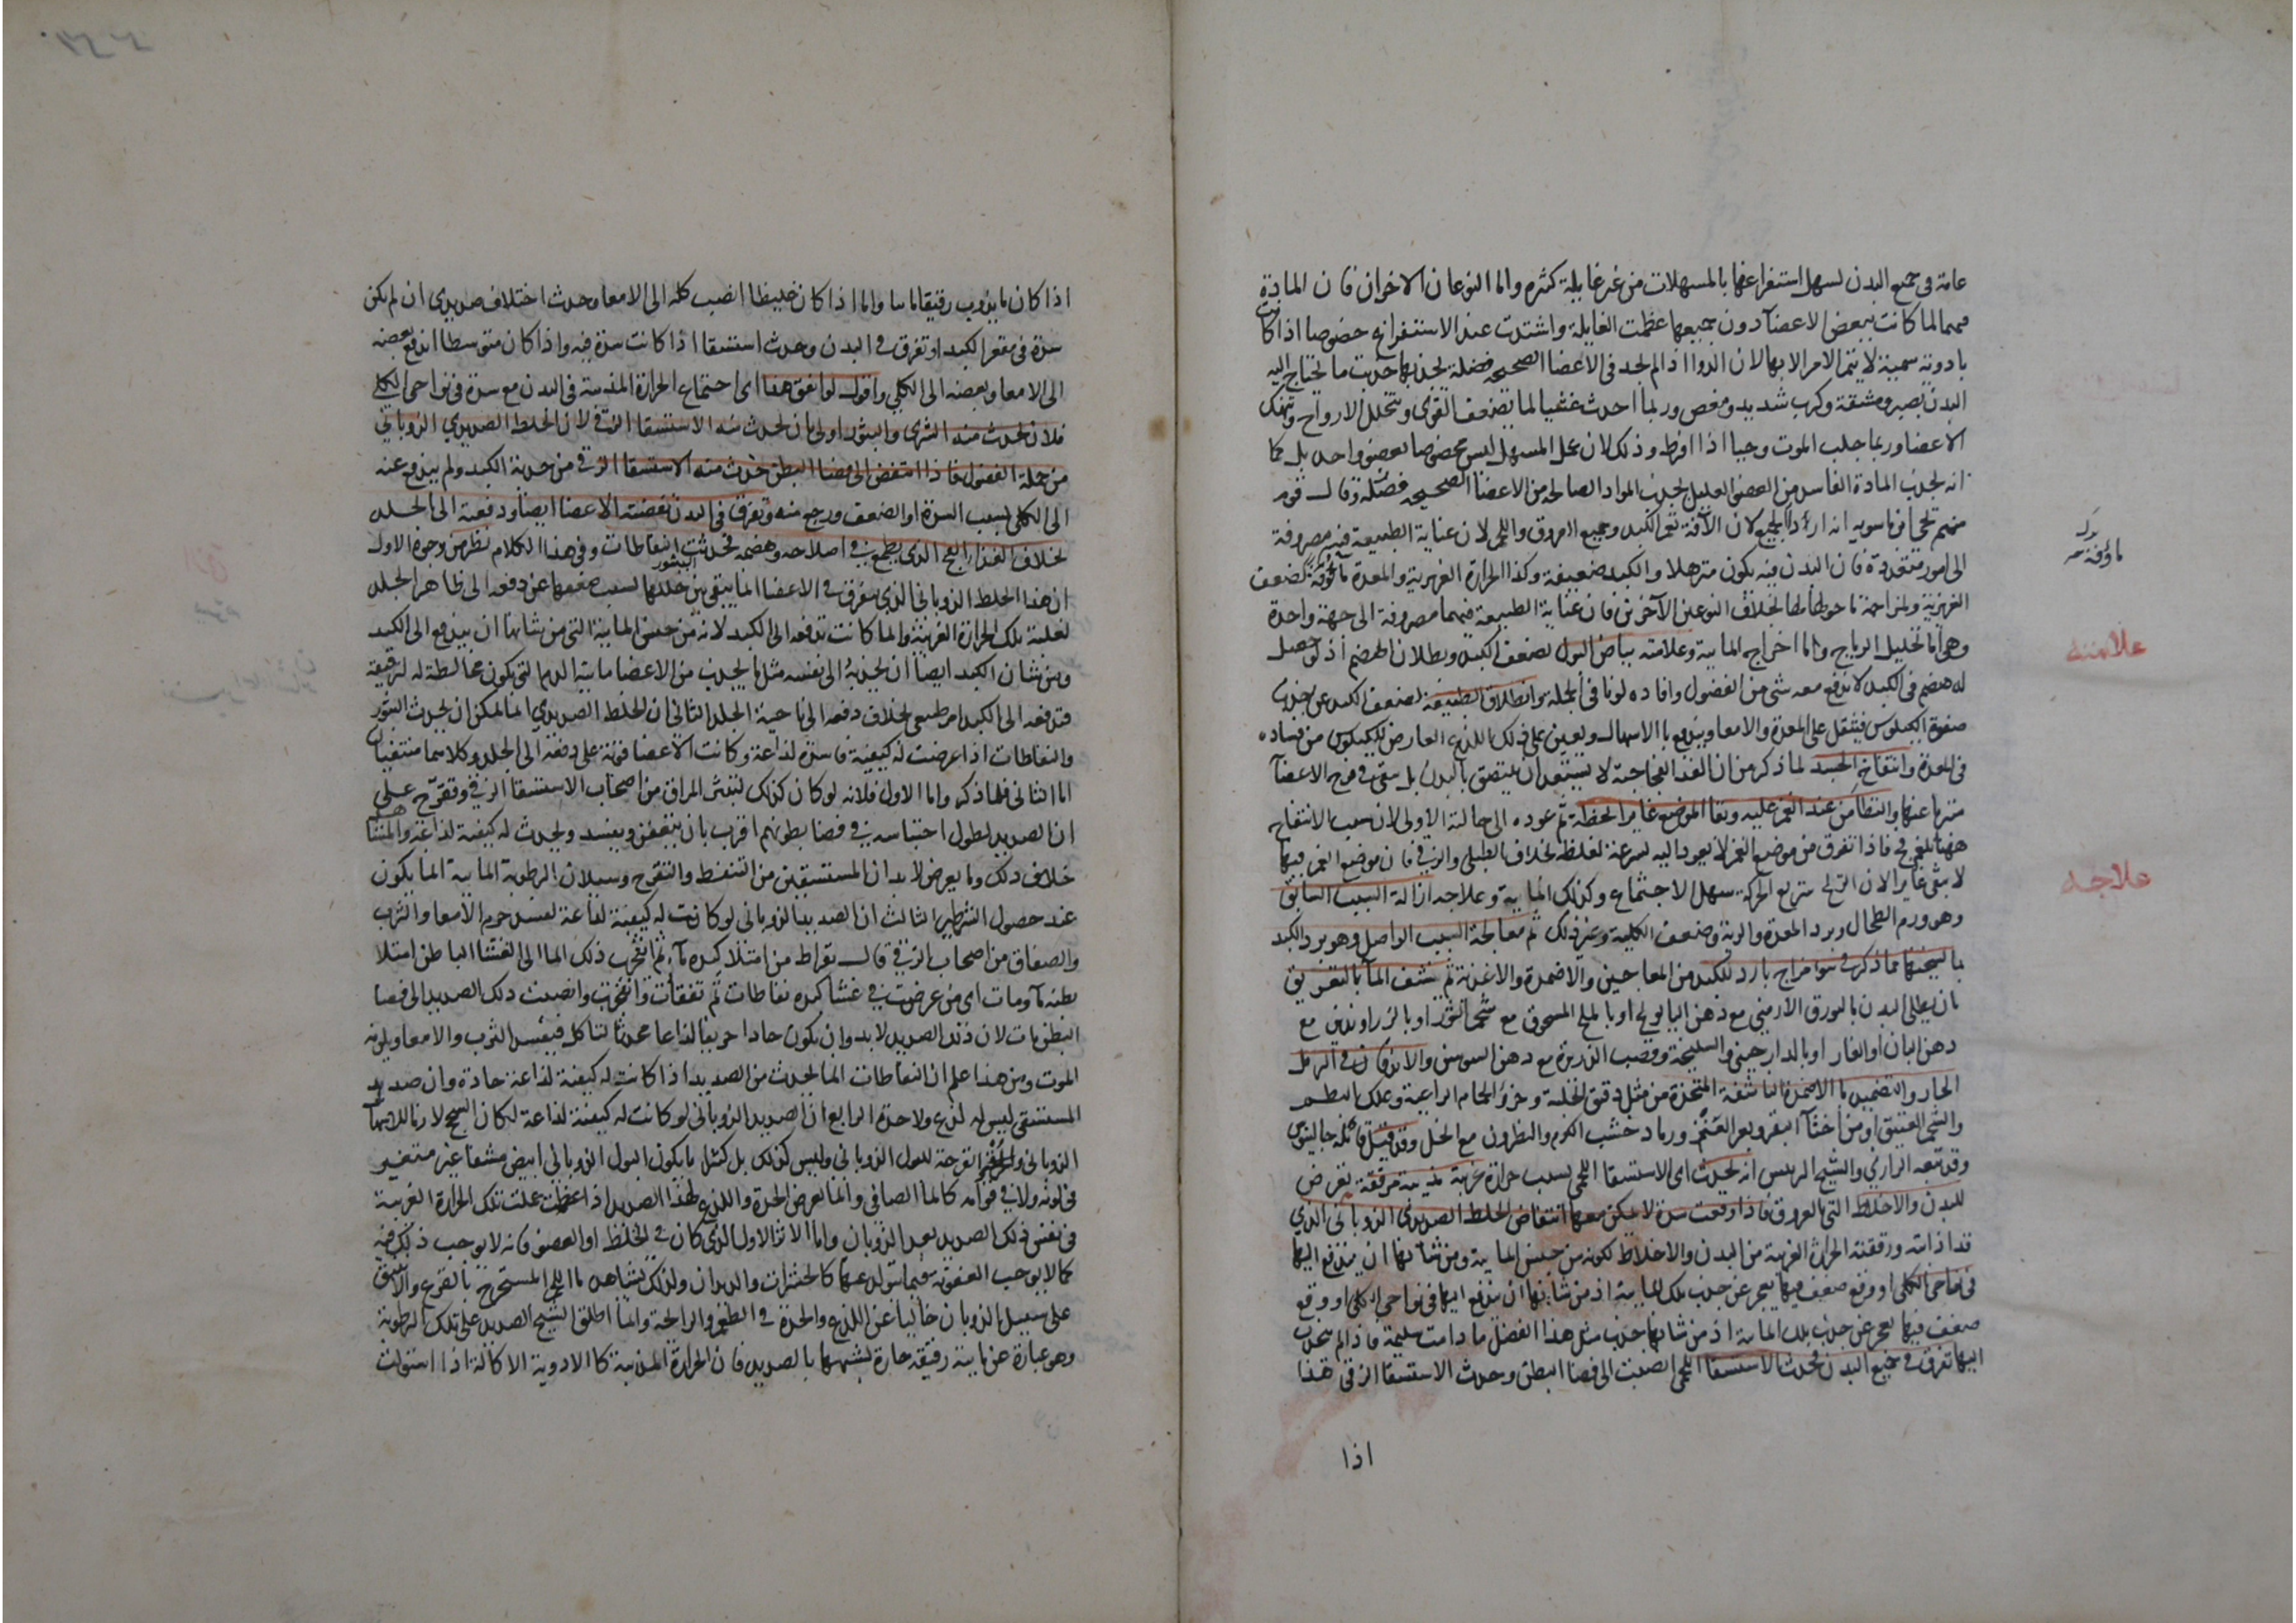 عامة فى جميع البدن لسهل استفراغها بالمسهلات من غير غايلة كثيره واما النوعان الاخران فان المادة
فيهما لما كانت ببعض الاعضآ دون جميعها عظمت الغايلة واشتدت عند الاستفراغ خصوصا اذا كانت
بادوية سمية لا يتم الامر الا بها لان الدوا اذا لم يجد فى الاعضا الصحيحه فضلة يجذبها جذب ما يحتاج اليه
البدن بصبر ومشقة وكرب شديد ومغص وربما احدث غشيا لما يضعف القوى ويتحلل الارواح وينهك
الاعضا وربما جلب الموت وحيا اذا افرط وذلك لان عمل المسهل ليس مخصوصا بعضو واحد بل كما
انه يجذب المادة الفاسدة من العضو العليل يجذب المواد الصالحة من الاعضا الصحيحه فضلة وقال قوم
منهم يحيى بن ماسويه انه اردأ الجميع لان الآفة تعم الكبد وجميع العروق واللحم لان عناية الطبيعة فيه مصروفة
الى امور متعددة فان البدن فيه يكون مترهلا والكبد ضعيفة وكذا الحرارة الغريزية والمعدة مأوفة لضعف
الغريزية ولمزاحمة ما حولها لها بخلاف النوعين الآخرين فان عناية الطبيعة فيهما مصروفة الى جهة واحدة
وهى اما تحليل الرياح واما اخراج المايية وعلامته بياض البول لضعف الكبد وبطلان الهضم اذ لو حصل
له هضم فى الكبد لاندفع معه شى من الفضول وافاده لونا فى الجملة وانطلاق الطبيعة لضعف الكبد عن جذب
صفوة الكيلوس فيثقل على المعدة والامعا ويندفع بالاسهال ويعين على ذلك اللذع العارض للكيلوس من فساده
فى المعدة وانتفاخ الجسد لما ذكر من ان الغذا الفجاجته لا يستعد ان يلتصق بالبدن بل يبقى فى فرج الاعضآ
متبريا عنها والتطامن عند الغمز عليه وبقا الموضع غايرا لحظة ثم عوده الى حالته الاولى لان سبب الانتفاخ
ههنا بلغم فج فاذا تفرق من موضع الغمز لا يعود اليه بسرعة لغلظه بخلاف الطبلى والزقى فان موضع الغمز فيهما
لا يبقى غايرا لان الريح سريع الحركة سهل الاجتماع وكذلك المايية وعلاجه ازالة السبب السابق
وهو ورم الطحال وبرد المعدة والرية وضعف الكلية وغير ذلك ثم معالجة السبب الواصل وهو برد الكبد
بالتسخنها مما ذكر فى سوء مزاج بارد للكبد من المعاجين والاضمدة والاغذية ثم نشف المآ بالتعريق
بان يطلى البدن بالبورق الارمنى مع دهن البابونج او بالملح المسحوق مع شحم الثور او بالزراوندين مع
دهن البان او الغار او بالدارصينى والسليخة وقصب الذريرة مع دهن السوسن والاندفان فى الرمل
الحار والتضميد بالاضمدة الناشفة المتخذة من مثل دقيق الحلبة وخرؤ الحمام الراعية وعلك البطم
والشحم العتيق او من اخثآ البقر وبعر الغنم ورماد خشب الكرم والنطرون مع الخل وقد قيل قائله جالينوس
وقد تبعه الرازي والشيخ الرييس انه يحدث اى الاستسقا اللحمى بسبب حرارة غريبة مذيبة مرققة تعرض
للبدن والاخلاط التى العروق فاذا وقعت سدة لا يمكن معها انتفاض الخلط الصديدى الذوبانى الذي
قد اذابته ورققته الحرارة الغريبة من البدن والاخلاط لكونه من جنس المايية ومن شانها ان يندفع اليها
فى نواحى الكلى او وقع ضعف فيها يعجز عن جذب تلك المايية اذ من شانها ان تندفع اليها فى نواحى الكلى او وقع
ضعف فيها يعجز عن جذب تلك المايية اذ من شانها جذب مثل هذا الفضل ما دامت سليمة فاذا لم يجذب
اليها تفرق فى جميع البدن فحدث الاستسقا اللحمى انصبت الى فضا البطن وحدث الاستسقا الزقى هذا
اذا
علامته
علاجه
اذا كان ما يذوب رقيقا ماييا واما اذا كان غليظا انصب كله الى الامعا وحدث اختلاف صديدى ان لم يكن
سدة فى مقعر الكبد او تفرق فى البدن وحدث استسقا اذا كانت سدة فيه واذا كان متوسطا اندفع بعضه
الى الامعا وبعضه الى الكلى واقول لو اتفق هذا اى اجتماع الحرارة المذيبة فى البدن مع سدة فى نواحى الكلى
فلان يحدث منه الشرى والبثور اولى بان يحدث منه الاستسقا الزقى لان الخلط الصديدي الذوبانى
من جملة الفضول فاذا انتفض الى فضا البطن حدث منه الاستسقا الزقى من حدبة الكبد ولم يندفع عنه
الى الكلى بسبب السدة او الضعف ورجع منه وتفرق فى البدن نفضته الاعضا ايضا ودفعته الى الجلد
بخلاف الغذا الفج الذى يطمع فى اصلاحه وهضمه فحدثت النفاطات وفى هذا الكلام نظر من وجوه الاول
ان هذا الخلط الذوبانى الذى يتفرق فى الاعضا انما يبقى بين خللها بسبب ضعفها عن دفعه الى ظاهر الجلد
لغلبة تلك الحرارة الغريبة وانما كانت تدفعه الى الكبد لانه من جنس المايية التى من شانها ان يندفع الى الكبد
ومن شان الكبد ايضا ان يجذبه الى نفسه مثل ما يجذب من الاعضا مايية الدم التى يكون مخالطة له لترقيقه
فتدفعه الى الكبد امر طبيعى بخلاف دفعه الى ناحية الجلد الثانى ان الخلط الصديدي انما يمكن ان يحدث البثور
والنفاطات اذا عرضت له كيفية فاسدة لذاعة وكانت الاعضا قوية على دفعه الى الجلد وكلاهما منتفيان
اما الثانى فلما ذكر واما الاول فلانه لو كان كذلك لتبثر المراق من اصحاب الاستسقا الزقى وتقرح على
ان الصديد لطول احتباسه فى فضا بطونهم اقرب بان يتعفن ويفسد ويحدث له كيفية لذاعة والمشاهد
خلاف ذلك وما يعرض لابدان المستسقين من التنفط والتقرح وسيلان الرطوبة المايية انما يكون
عند حصول الشرطين الثالث ان الصديد الذوبانى لو كانت له كيفية لذاعة لفسد جرم الامعا والثرب
والصفاق من اصحاب الزقى قال بقراط من امتلا كبده مآء ثم انفجر ذلك الما الى الغشا الباطن امتلا
بطنه مآ ومات اى من عرضت فى غشا كبده نفاطات ثم تفقأت وانفجرت وانصبت ذلك الصديد الى فضا
البطن مات لان ذلك الصديد لابد وان يكون حادا حريفا لذاعا محدثا لتاكل فيفسد الثرب والامعا ويلزمه
الموت ومن هذا علم ان النفاطات انما يحدث من الصديد اذا كانت له كيفية لذاعة حادة وان صديد
المستسقى ليس له لذع ولا حدة الرابع ان الصديد الذوبانى لو كانت له كيفية لذاعة لكان السحج لازما للاسهال
الذوبانى والقرحة للبول الذوبانى وليس كذلك بل كثيرا ما يكون البول الذوبانى ابيض مشفا غير متغير
فى لونه ولا فى قوامه كالما الصافى وانما يعرض الحدة واللذع لهذا الصديد اذا عظمت علت تلك الحرارة الغريبة
فى نفس ذلك الصديد بعد الذوبان واما الاثر الاول الذى كان فى الخلط او العضو فانه لا يوجب ذلك فيه
كما لا يوجب العفونة فيما يتولد عنها كالحشرات والديدان ولذلك يشاهد ما اللحم المستخرج بالقرع والانبيق
على سبيل الذوبان خاليا عن اللذع والحدة فى الطعم والرايحة وانما اطلق الشيخ الصديد على تلك الرطوبة
وهو عبارة عن مايية رقيقة حارة لشبهها بالصديد فان الحرارة المذيبة كالادوية الاكالة اذا استولت